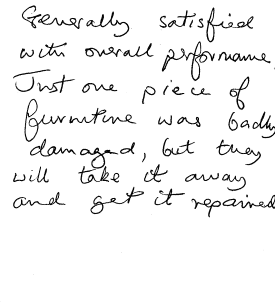 Generally satisfied
with overall performance.
Just one piece of
furniture was badly
damaged, but they
will take it away
and get it repaired